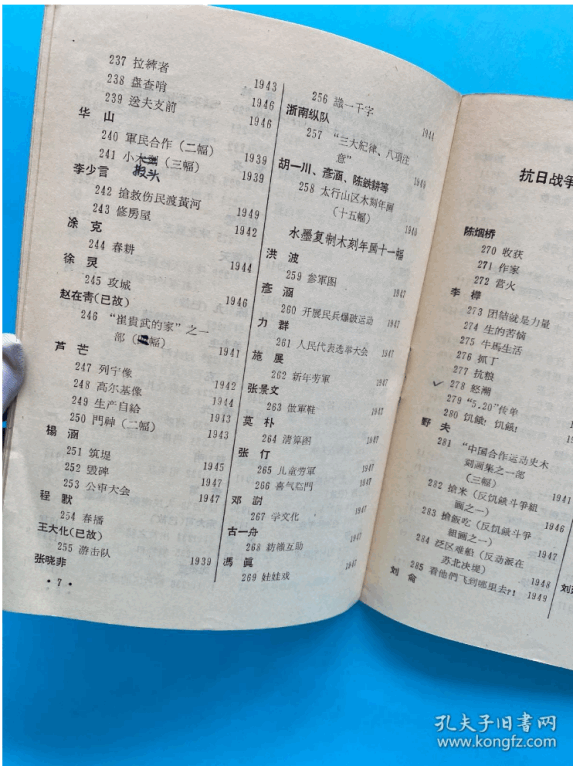 237 拉縴者 1943
238 盘查哨 1946
239 送夫支前 1946
华 山
240 軍民合作（二幅） 1939
241 小木（三幅） 1939
李少言
242 搶救伤民渡黃河 1949
243 修房屋 1942
涂 克
244 春耕 1944
徐 灵
245 攻城 1946
赵在青(已故)
246 “崔貴武的家”之一
部（幅） 1941
芦 芒
247 列宁像 1942
248 高尔基像 1944
249 生产自給 1943
250 門神（二幅） 1943
楊 涵
251 筑堤 1945
252 毀碑 1947
253 公审大会 1947
程 歌
254 春播
王大化(已故)
255 游击队 1939
张晓非
• 7 •
256 識一千字 1944
浙南纵队
257 “三大紀律、八項注
意”
胡一川、彥涵、陈鉄耕等
258 太行山区木刻年画
（十五幅）
水墨复制木刻年画十一幅
洪 波
259 参軍图 1947
彥 涵
260 开展民兵爆破运动 1947
力 群
261 人民代表选举大会 1947
施 展
262 新年劳軍 1947
张景文
263 做軍鞋 1947
莫 朴
264 清算图 1947
张 仃
265 儿童劳軍 1947
266 喜气临門 1947
邓 澍
267 学文化 1947
古一舟
268 紡織互助 1947
馮 真
269 娃娃戏 1947
抗日战爭
陈烟桥
270 收获
271 作家
272 营火
李 樺
273 团結就是力量
274 生的苦惱
275 牛馬生活
276 抓丁
277 抗粮
278 怒潮
279 “5.20”传单
280 饥餓！饥餓！
野 夫
281 “中国合作运动史木
刻画集之一部
（三幅）
282 搶米（反饥餓斗爭組
画之一） 1946
283 搶飯吃（反饥餓斗爭
組画之一） 1947
284 泛区难船（反动派在
苏北决堤） 1948
285 看他們飞到哪里去?! 1949
刘 侖
孔夫子旧书网
www.kongfz.com